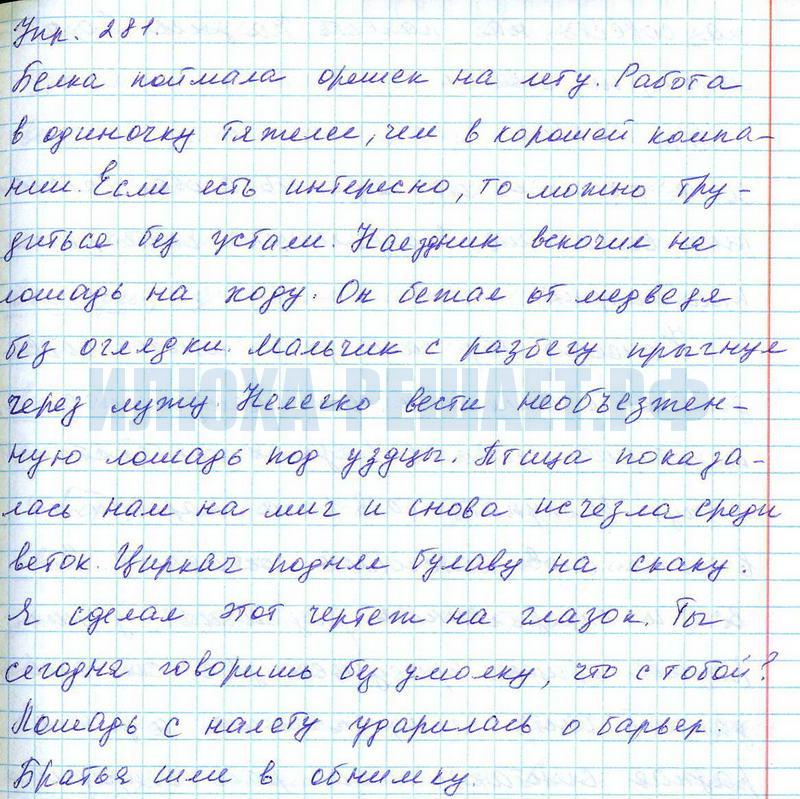 Упр. 281.
Белка поймала орешек на лету. Работа
в одиночку тяжелее, чем в хорошей компа-
нии. Если есть интересно, то можно тру-
диться без устали. Наездник вскочил на
лошадь на ходу. Он бежал от медведя
без оглядки. Мальчик с разбегу прыгнул
через лужу. Нелегко вести необъезжен-
ИЛЮХА-РЕШАЕТ.РФ
ную лошадь под уздцы. Птица показа-
лась нам на миг и снова исчезла среди
веток. Циркач поднял булаву на скаку.
Я сделал этот чертеж на глазок. Ты
сегодня говоришь без умолку, что с тобой?
Лошадь с налету ударилась о барьер.
Братья шли в обнимку.